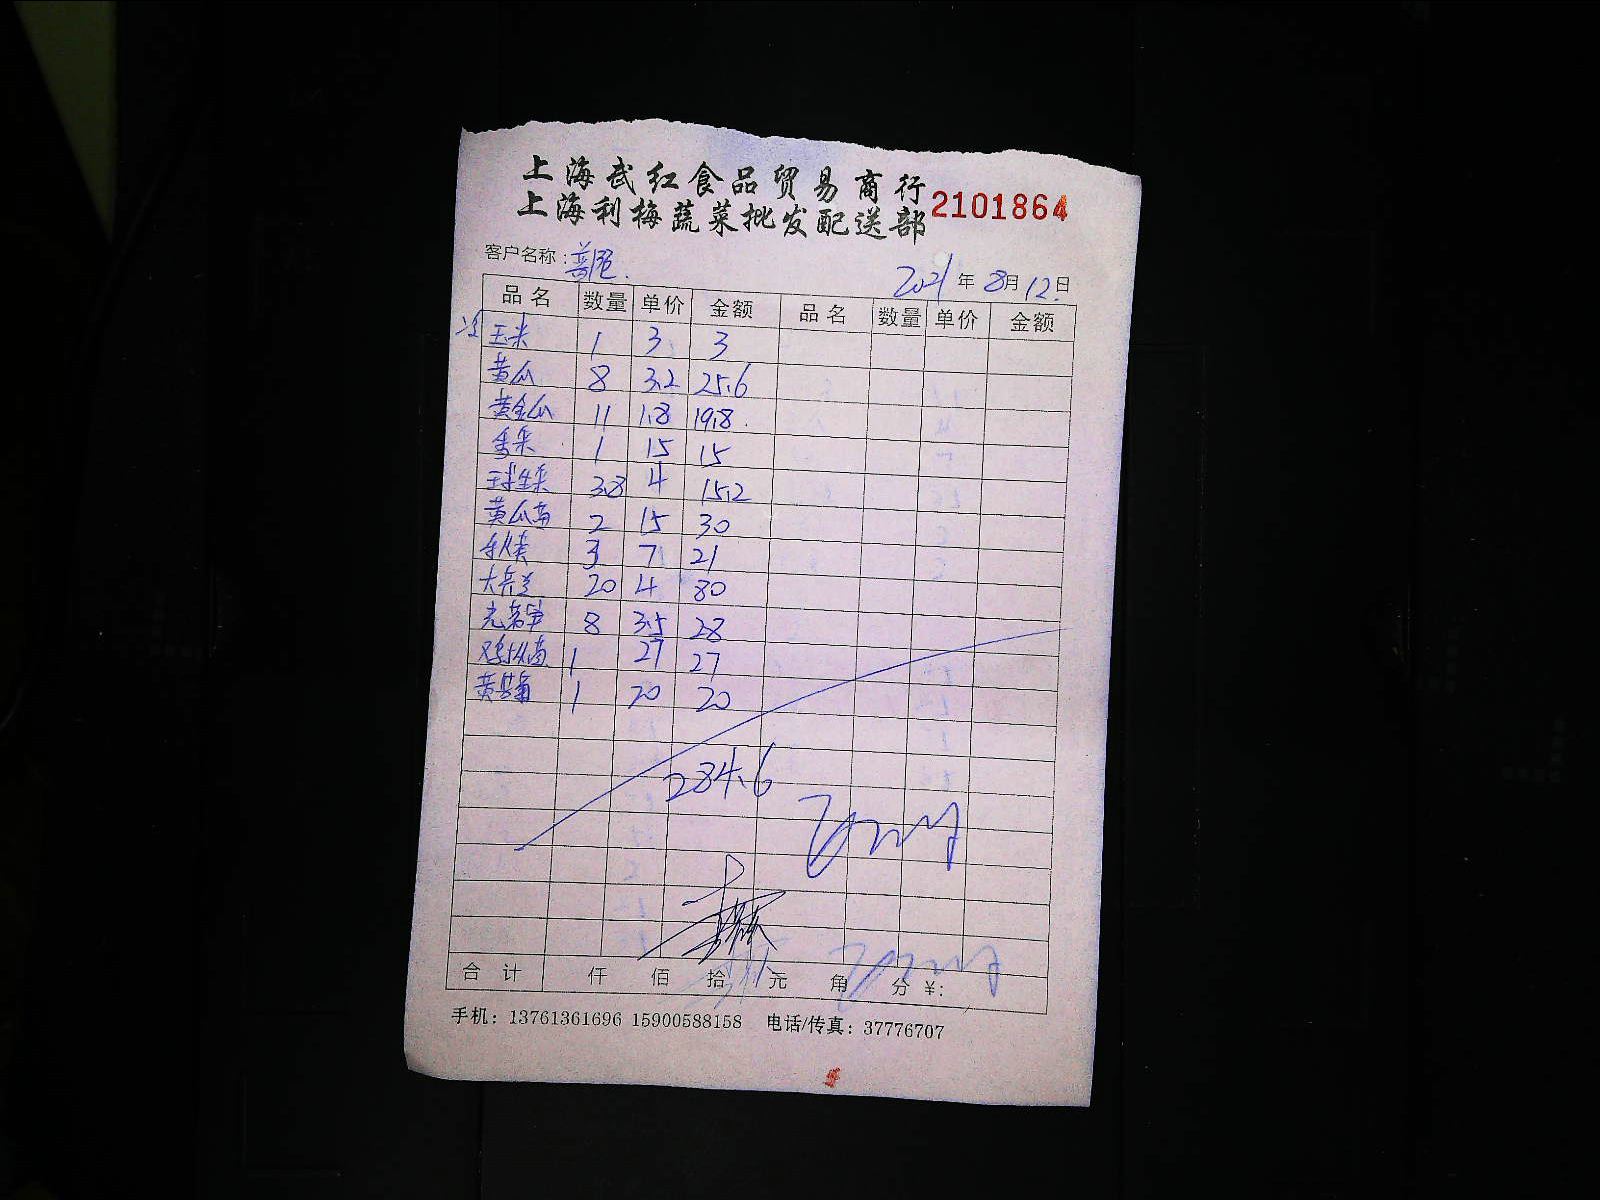 上海武红食品贸易商行
上海利梅蔬菜批发配送部 2101864
客户名称: 2021年8月12日
品名 数量 单价 金额 品名 数量 单价 金额
玉米 1 3 3
黄瓜 8 3.2 25.6
黄金瓜 11 1.8 19.8
香菜 1 15 15
球生菜 3.8 4 15.2
黄瓜苗 2 15 30
3 7 21
20 4 80
8 3.5 28
鸡枞菌 1 27 27
1 20 20
284.6
合计 仟 佰 拾 元 角 分 ¥:
手机: 13761361696 15900588158 电话/传真: 37776707